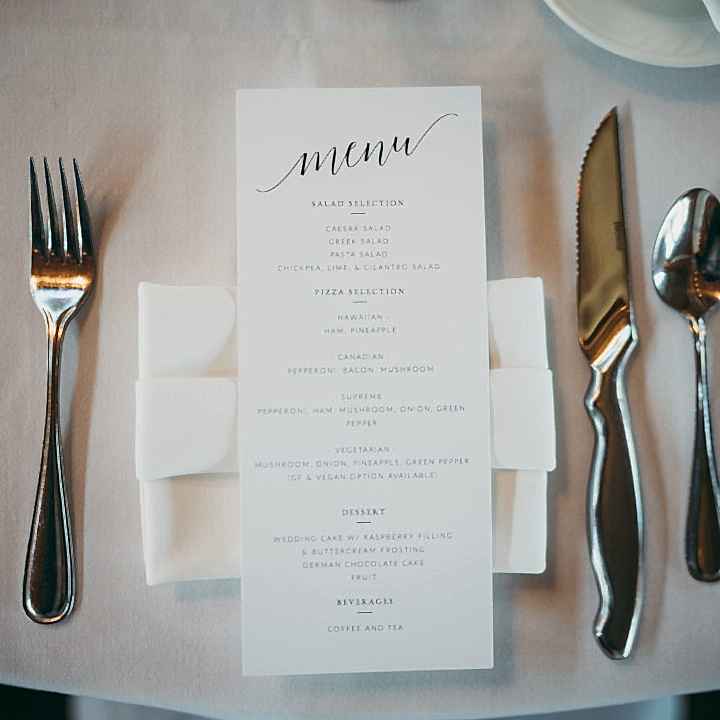 menu
SALAD SELECTION
CAESAR SALAD
GREEK SALAD
PASTA SALAD
CHICKPEA, LIME, & CILANTRO SALAD
PIZZA SELECTION
HAWAIIAN -
HAM, PINEAPPLE
CANADIAN
PEPPERONI, BACON, MUSHROOM
SUPREME
PEPPERONI, HAM, MUSHROOM, ONION, GREEN
PEPPER
VEGETARIAN -
MUSHROOM, ONION, PINEAPPLE, GREEN PEPPER
(GF & VEGAN OPTION AVAILABLE)
DESSERT
WEDDING CAKE W/ RASPBERRY FILLING
& BUTTERCREAM FROSTING
GERMAN CHOCOLATE CAKE
FRUIT
BEVERAGES
COFFEE AND TEA